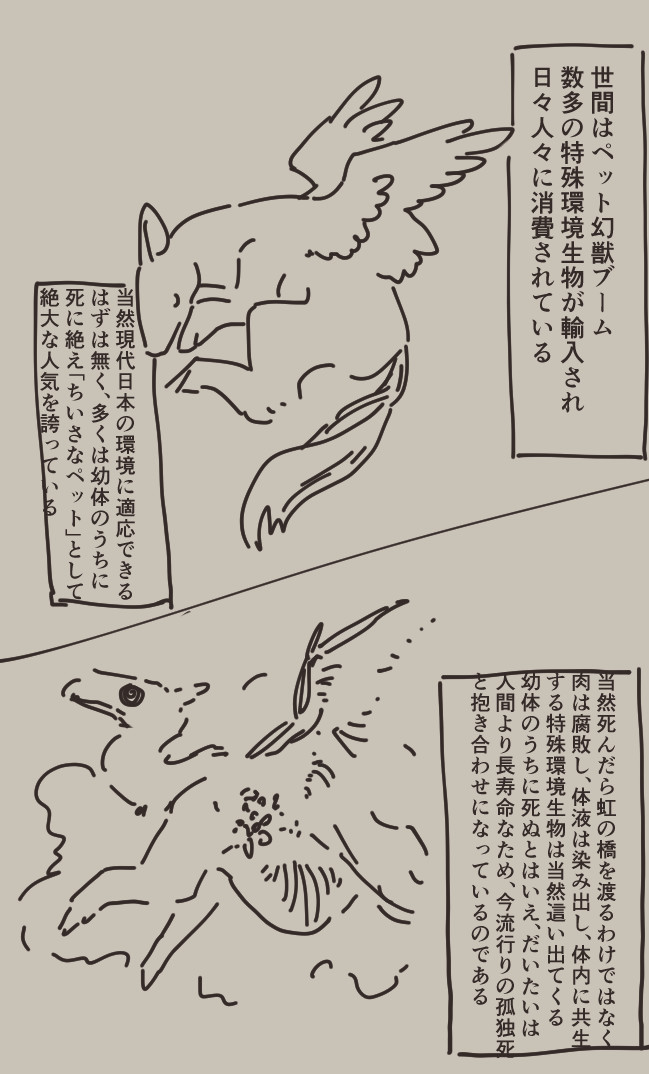 世間はペット幻獣ブーム
数多の特殊環境生物が輸入され
日々人々に消費されている
当然現代日本の環境に適応できる
はずは無く、多くは幼体のうちに
死に絶え「ちいさなペット」として
絶大な人気を誇っている
当然死んだら虹の橋を渡るわけではなく
肉は腐敗し、体液は染み出し、体内に共生
する特殊環境生物は当然這い出てくる
幼体のうちに死ぬとはいえ、だいたいは
人間より長寿命なため、今流行りの孤独死
と抱き合わせになっているのである